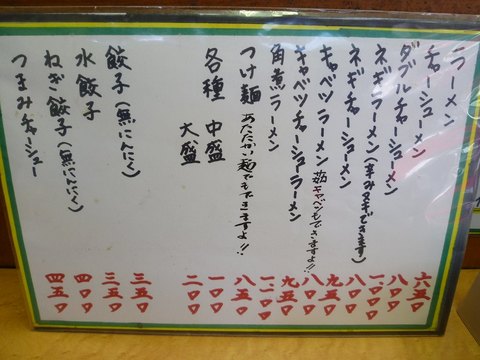 ラーメン 六五〇
チャーシューメン 八〇〇
ダブルチャーシューメン 一、〇〇〇
ネギラーメン(辛みヌキできます) 八〇〇
ネギチャーシューメン 九五〇
キャベツラーメン 茹キャベツもできますよ!! 八〇〇
キャベツチャーシューラーメン 九五〇
角煮ラーメン 一、〇〇〇
つけ麺 あたたかい麺でもできますよ!! 八五〇
各種 中盛 一〇〇
大盛 二〇〇
餃子(無にんにく) 三五〇
水餃子 三五〇
ねぎ餃子(無にんにく) 四〇〇
つまみチャーシュー 四五〇